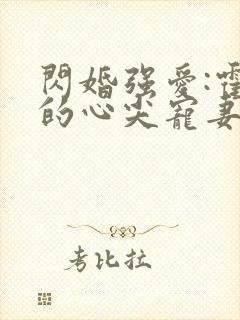 閃婚強愛:霍
的心尖寵妻
考比拉